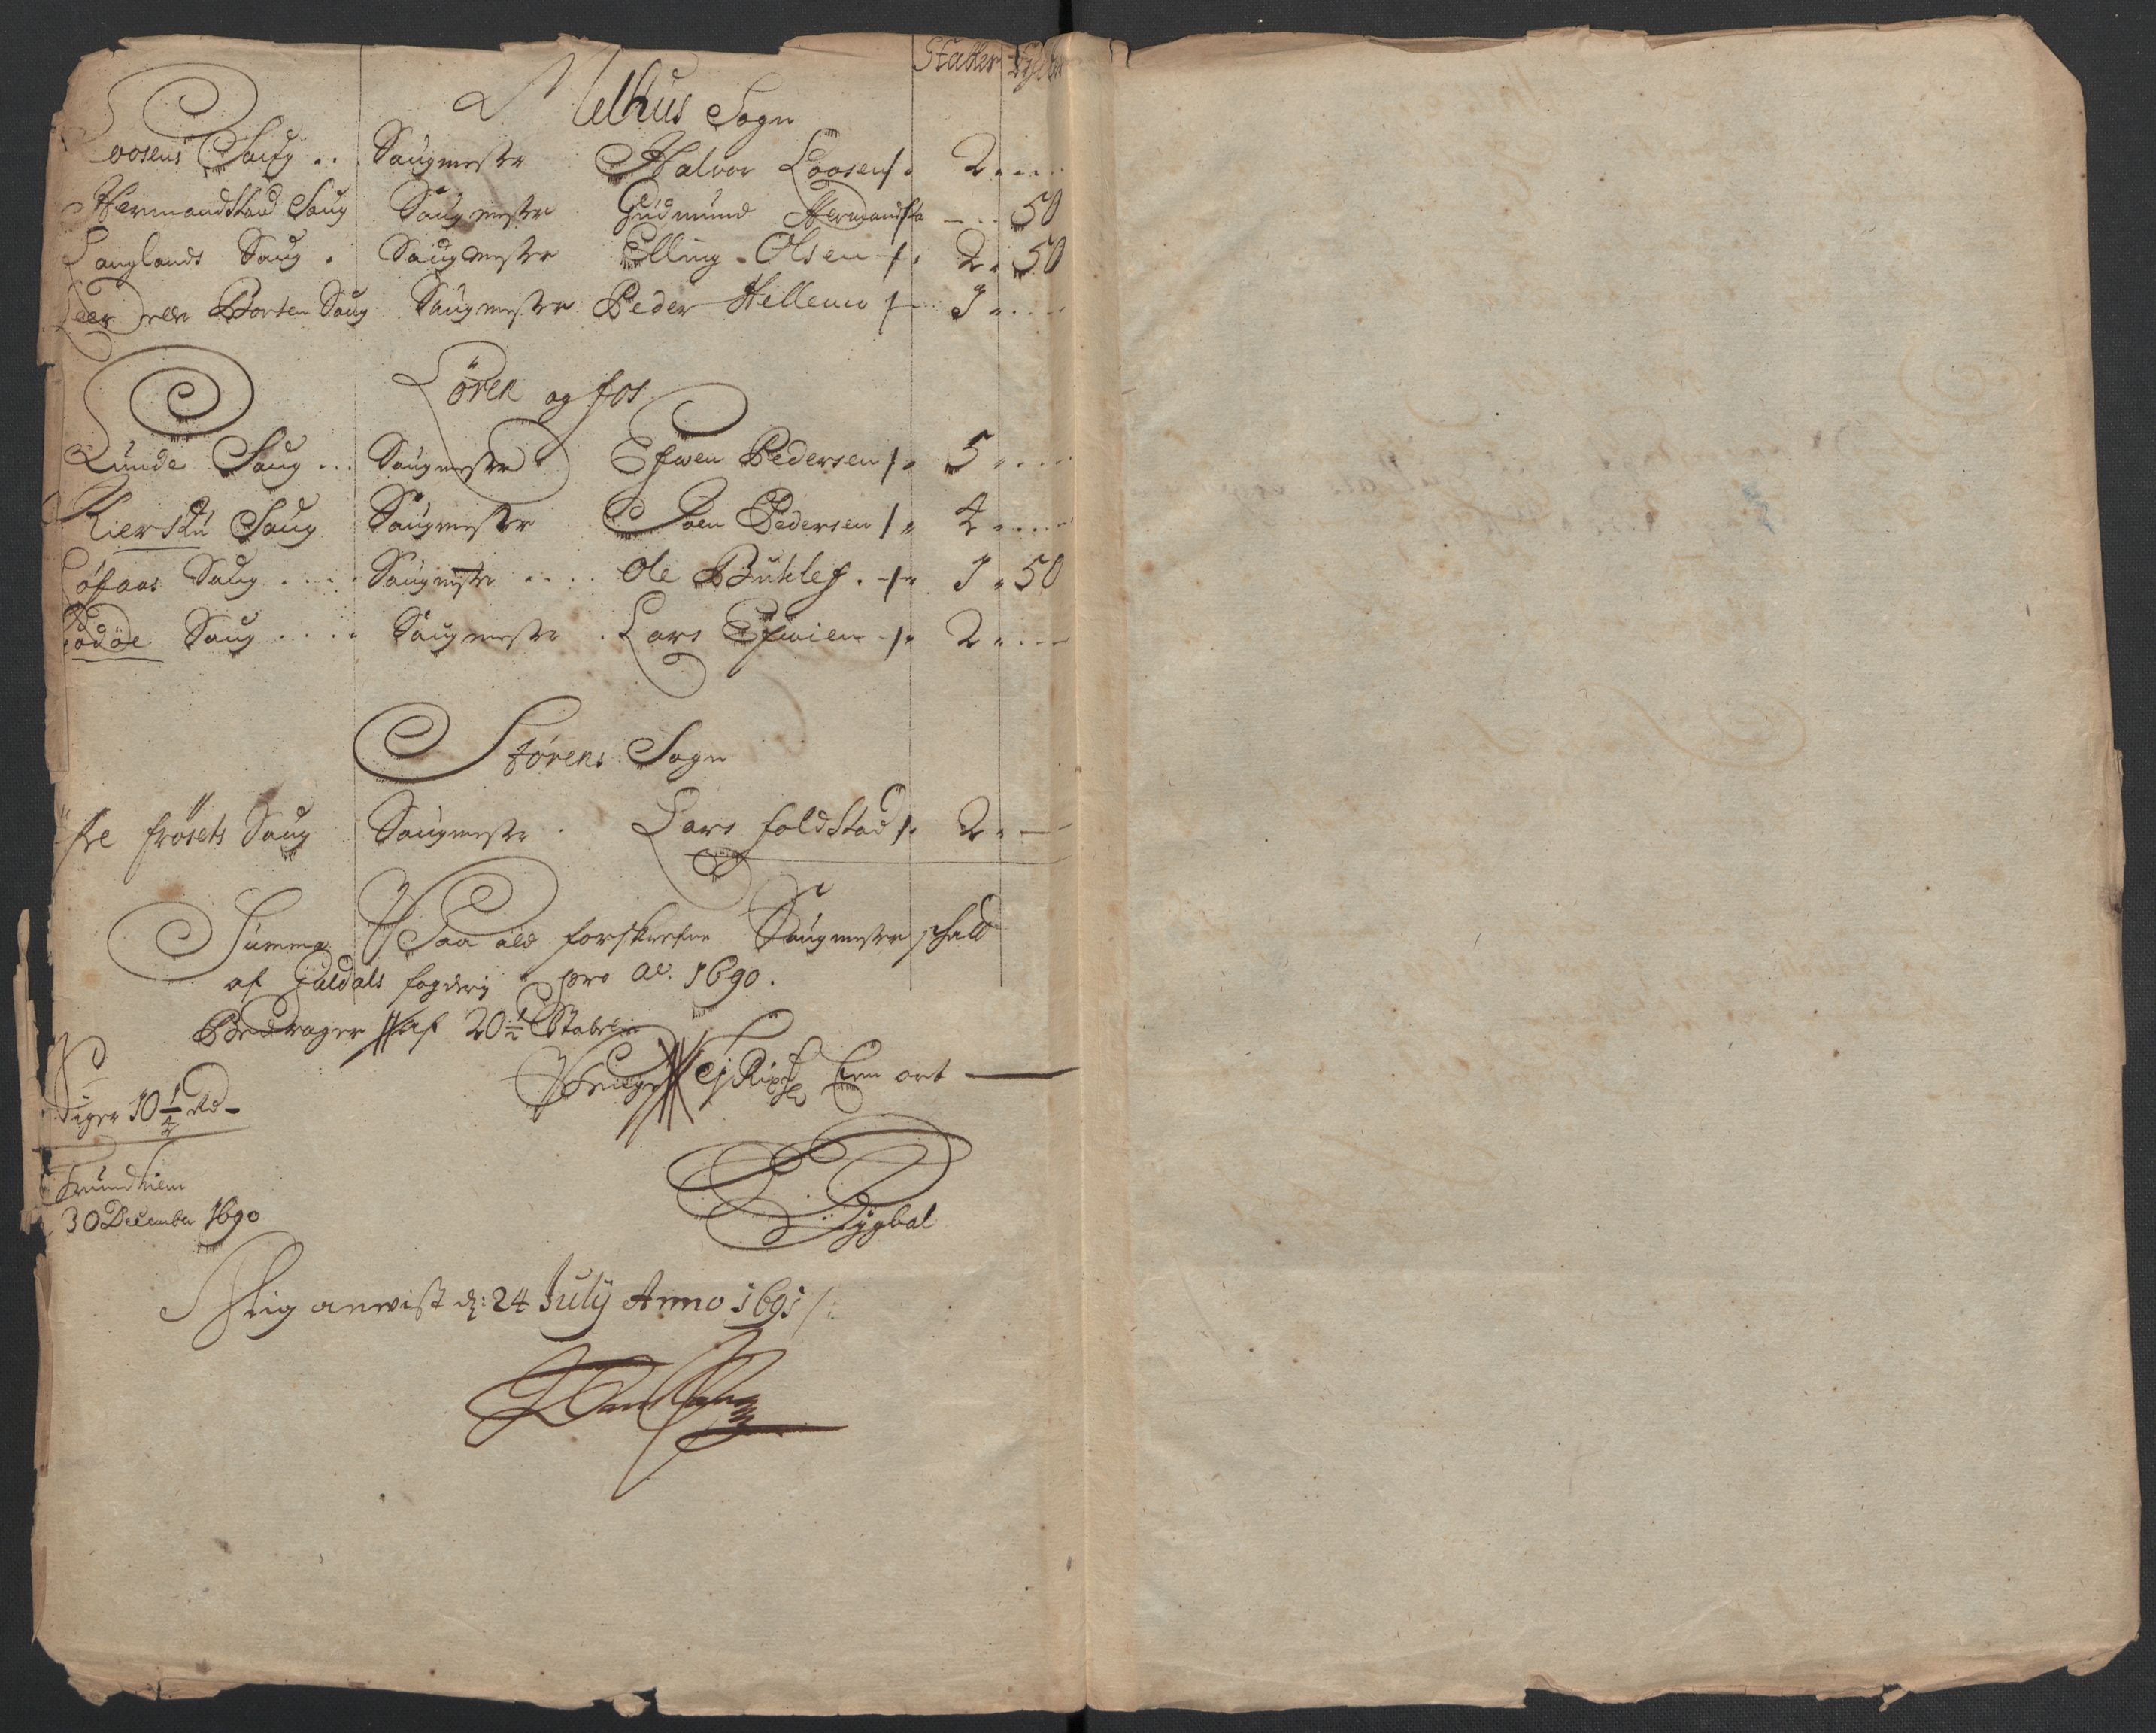 Stabler Tylter
Melhus Sogn
Loosens Saug . . . Saugmester Halvor Loosen /. 2 . . . .
Hermandstad Saug Saugmester Gudmund Hermandsta — . . 50
Langlands Saug . Saugmester Elling Olsen /. 2 . 50
Leer eller Borten Saug Saugmester Peder Hellemo / . . 1 . . . .
Hölen og fos
Lunde Saug . . . Saugmester Efwen Pedersen /. 5 . . . .
Kiersku Saug Saugmester Joen Pedersen /. 4 . . . .
Løfaas Saug . . . . Saugmester . . . . Ole Buhle /. 1 . 50
Gaasöe Saug . . . . Saugmester . Lars Efwien /. 2 . . . .
Størens Sogn
frøsets Saug Saugmester . Lars foldstad /. 2 . —
Summa Paa ald forskrefne Saugmester schatt
af Guldals fogderj pro Ao. 1690.
Bedrager af 20½ Stabel
Penge Ej Rixdlr Een ort —
Siger 10¼ Rd –
Trundhiem
30 December 1690
Mig anvist d: 24 July Anno 1691 /: